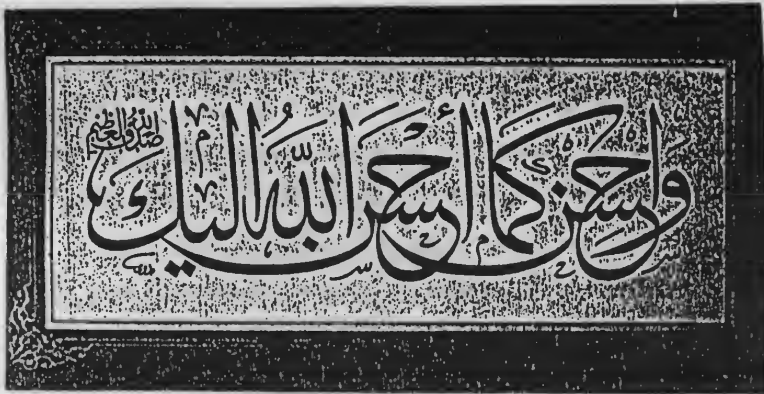 وأحسن كما أحسن الله إليك
صدق الله العظيم